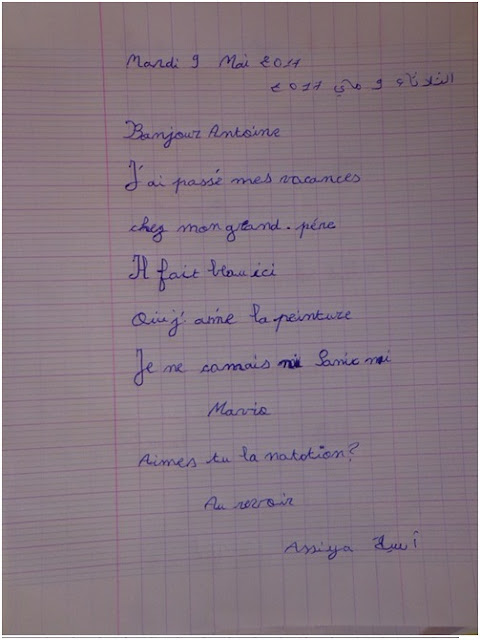 Mardi 9 Mai 2017
الثلاثاء 9 ماي 2017
Bonjour Antoine
J'ai passé mes vacances
chez mon grand-pére
Il fait beau ici
Oui j'aime la peinture
Je ne connais ni Sonia ni
Mario
Aimes tu la natation?
Au revoir
Assiya آسية